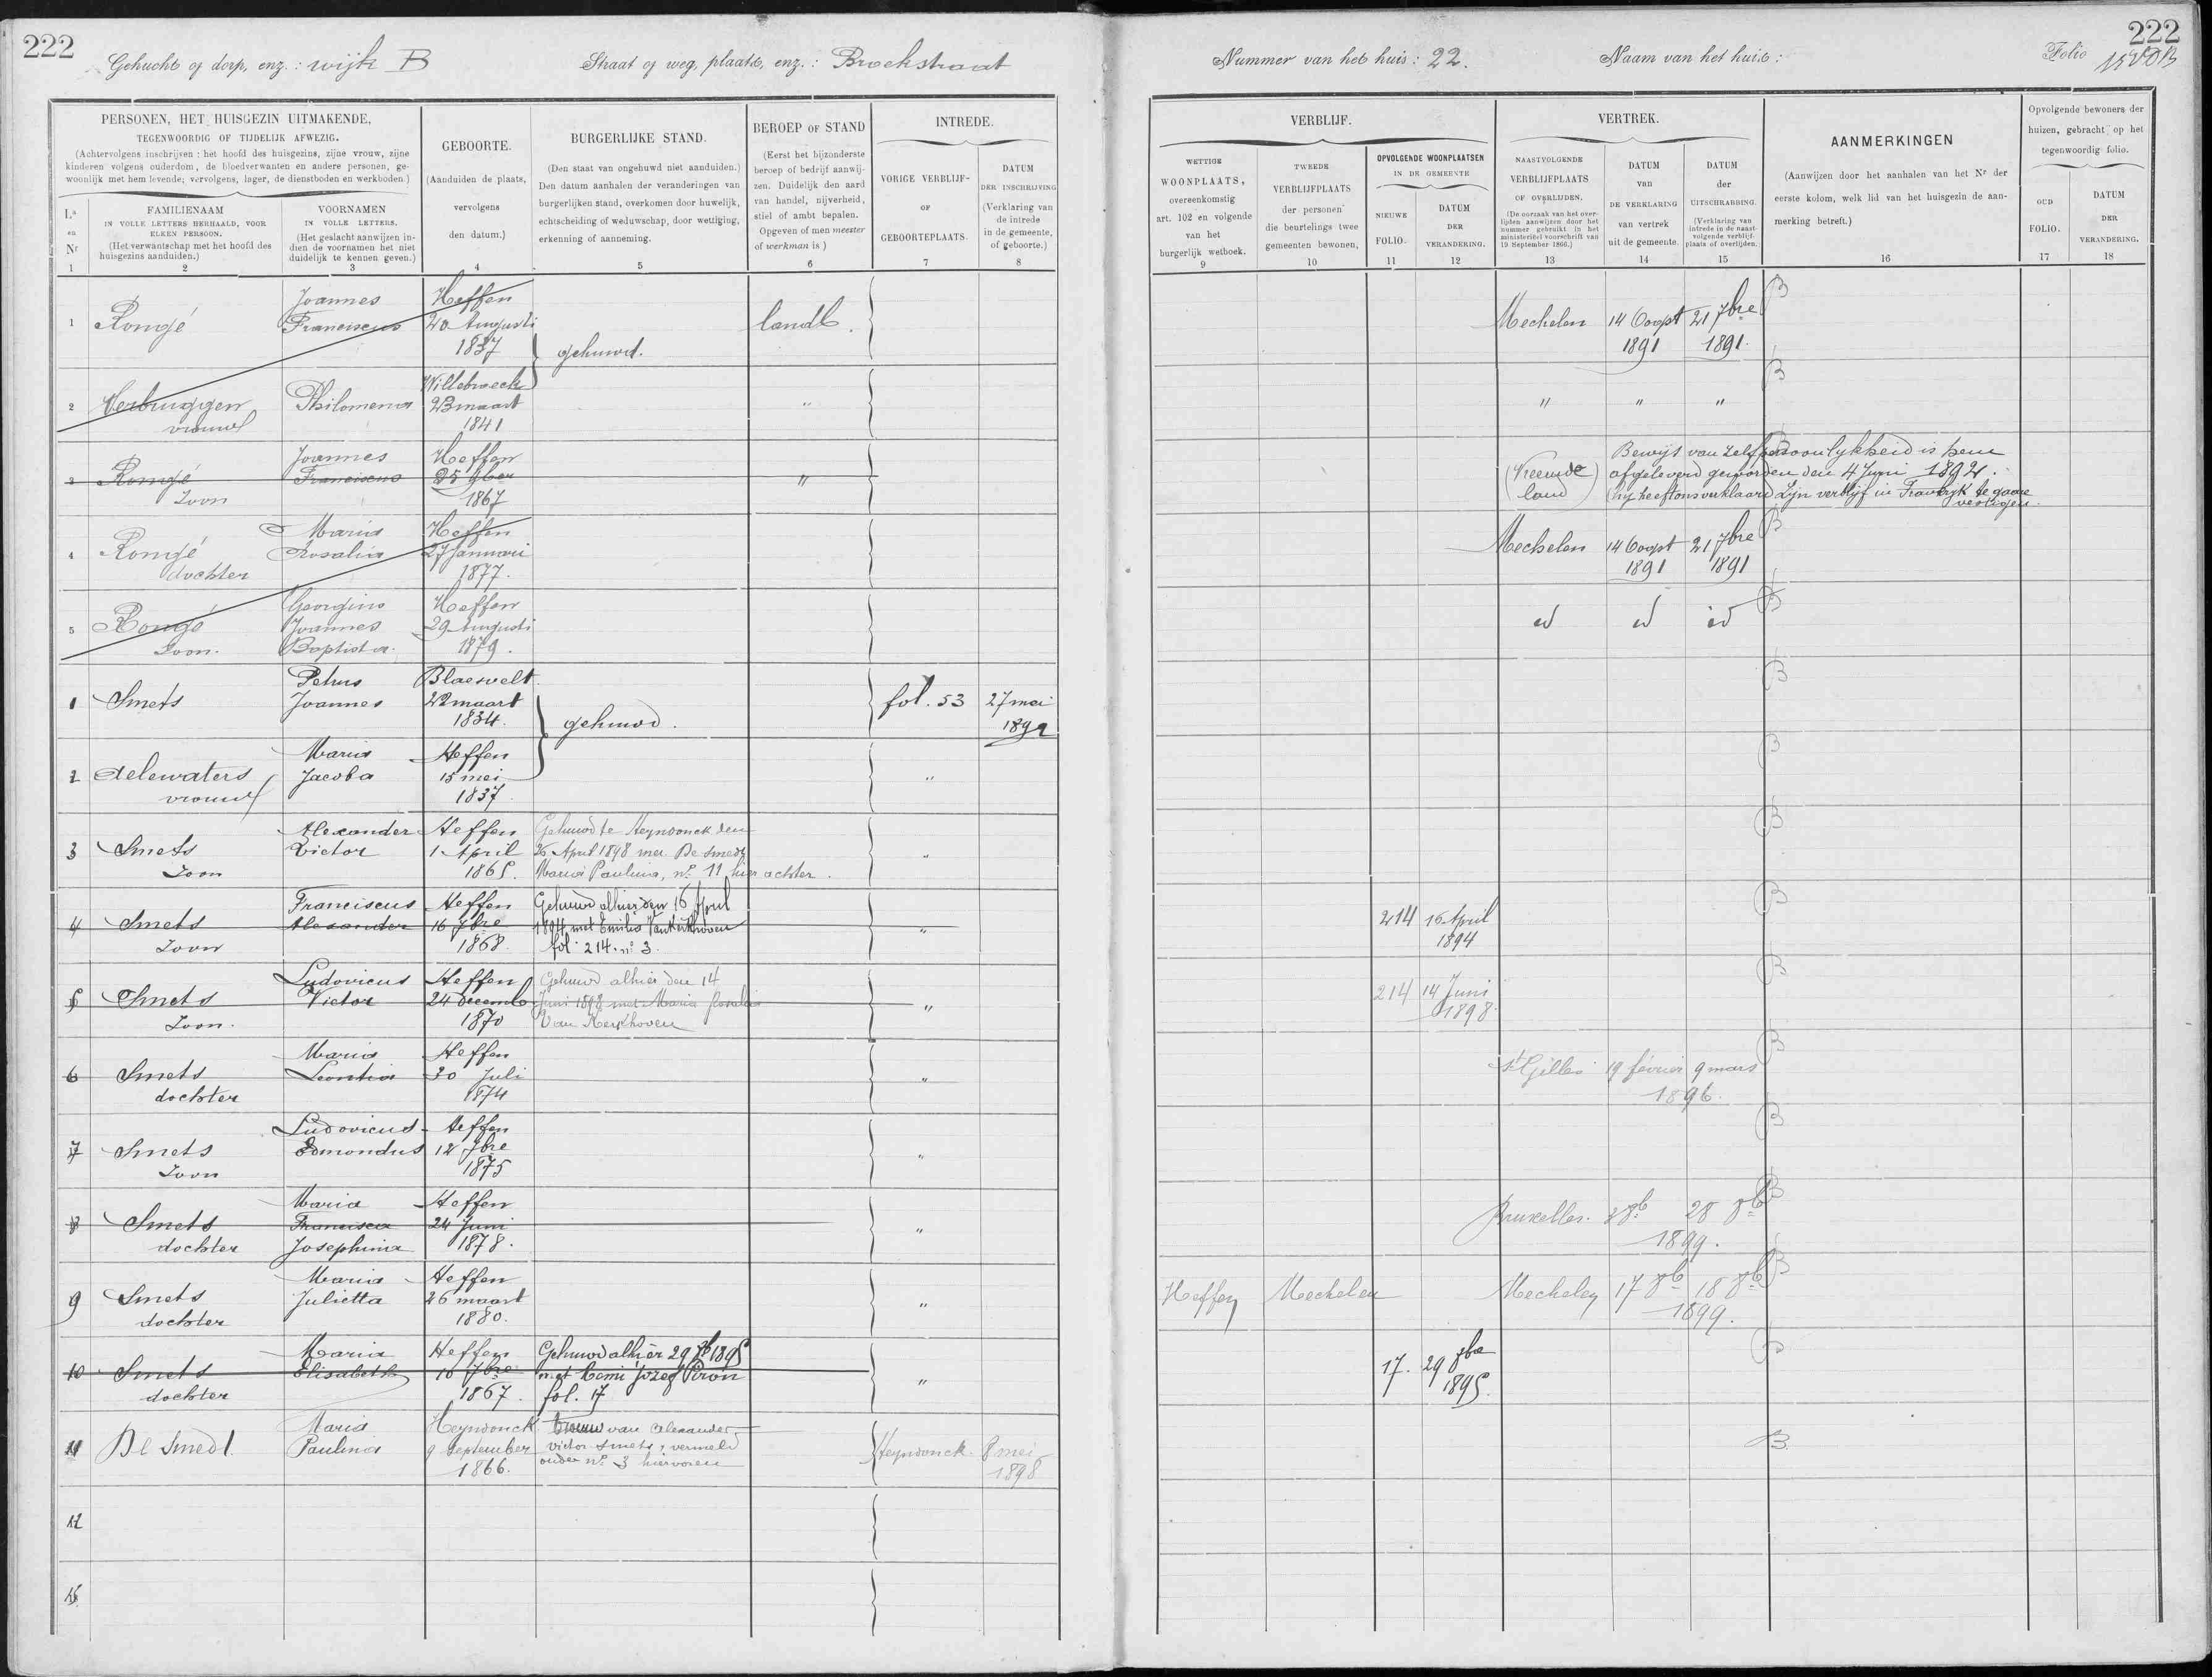 222
Gehucht of dorp, enz. : wijk B
Straat of weg, plaats, enz. : Broekstraat
PERSONEN, HET HUISGEZIN UITMAKENDE,
TEGENWOORDIG OF TIJDELIJK AFWEZIG.
(Achtervolgens inschrijven : het hoofd des huisgezins, zijne vrouw, zijne
kinderen volgens ouderdom, de bloedverwanten en andere personen, ge-
woonlijk met hem levende; vervolgens, lager, de dienstboden en werkboden.)
La
en
Nr
1
FAMILIENAAM
IN VOLLE LETTERS HERHAALD, VOOR
ELKEN PERSOON.
(Het verwantschap met het hoofd des
huisgezins aanduiden.)
2
VOORNAMEN
IN VOLLE LETTERS.
(Het geslacht aanwijzen in-
dien de voornamen het niet
duidelijk te kennen geven.)
3
GEBOORTE.
(Aanduiden de plaats,
vervolgens
den datum.)
4
BURGERLIJKE STAND.
(Den staat van ongehuwd niet aanduiden.)
Den datum aanhalen der veranderingen van
burgerlijken stand, overkomen door huwelijk,
echtscheiding of weduwschap, door wettiging,
erkenning of aanneming.
5
BEROEP OF STAND
(Eerst het bijzonderste
beroep of bedrijf aanwij-
zen. Duidelijk den aard
van handel, nijverheid,
stiel of ambt bepalen.
Opgeven of men meester
of werkman is)
6
INTREDE.
VORIGE VERBLIJF-
OF
GEBOORTEPLAATS.
7
DATUM
DER INSCHRIJVING
(Verklaring van
de intrede
in de gemeente,
of geboorte.)
8
1 Rongé
Joannes
Franciscus
Heffen
20 Augusti
1837
gehuwd.
landb.
2 Verbruggen
vrouw
Philomena
Willebroeck
23 maart
1841
"
3 Rongé
Zoon
Joannes
Franciscus
Heffen
25 9ber
1867
"
4 Rongé
dochter
Maria
Rosalia
Heffen
27 Januari
1877.
5 Rongé
Zoon.
Georgius
Joannes
Baptista.
Heffen
29 Augusti
1879.
1 Smets
Petrus
Joannes
Blaesvelt
22 maart
1834.
gehuwd.
fol. 53
27 mei
1892
2 delewaters
vrouw
Maria
Jacoba
Heffen
15 mei
1837
"
3 Smets
Zoon
Alexander
Victor
Heffen
1 April
1865.
Gehuwd te Heyndonck den
26 April 1898 met De Smedt
Maria Paulina, no 11 hier achter.
"
4 Smets
Zoon
Franciscus
Alexander
Heffen
16 7bre
1868
Gehuwd alhier den 16 April
1894 met Emilia Vankerkhoven
fol. 214. no 3.
"
5 Smets
Zoon.
Ludovicus
Victor
Heffen
24 decemb
1870
Gehuwd alhier den 14
Juni 1898 met Maria
Van Kerkhoven
"
6 Smets
dochter
Maria
Leontia
Heffen
30 Juli
1874
"
7 Smets
Zoon
Ludovicus
Edmondus
Heffen
12 7bre
1875
"
8 Smets
dochter
Maria
Francisca
Josephina
Heffen
24 Juni
1878.
"
9 Smets
dochter
Maria
Julietta
Heffen
26 maart
1880.
"
10 Smets
dochter
Maria
Elisabeth
Heffen
10 7bre
1867.
Gehuwd alhier 29 1895
met Remi Jozef Piron
fol. 17
"
11 De Smedt
Maria
Paulina
Heyndonck
9 September
1866.
Vrouw van Alexander
Victor Smets, vermeld
onder no 3 hiervoren
Heyndonck.
8 mei
1898
12
Nummer van het huis : 22.
Naam van het huis :
Folio
222
VERBLIJF.
WETTIGE
WOONPLAATS,
overeenkomstig
art. 102 en volgende
van het
burgerlijk wetboek.
9
TWEEDE
VERBLIJFPLAATS
der personen
die beurtelings twee
gemeenten bewonen.
10
OPVOLGENDE WOONPLAATSEN
IN DE GEMEENTE
NIEUWE
FOLIO.
11
DATUM
DER
VERANDERING.
12
VERTREK.
NAASTVOLGENDE
VERBLIJFPLAATS
OF OVERLIJDEN.
(De oorzaak van het over-
lijden aanwijzen door het
nummer gebruikt in het
ministerieel voorschrift van
19 September 1866.)
13
DATUM
van
DE VERKLARING
van vertrek
uit de gemeente.
14
DATUM
der
UITSCHRABBING.
(Verklaring van
intrede in de naast-
volgende verblijf-
plaats of overlijden.)
15
AANMERKINGEN
(Aanwijzen door het aanhalen van het Nr der
eerste kolom, welk lid van het huisgezin de aan-
merking betreft.)
16
Opvolgende bewoners der
huizen, gebracht op het
tegenwoordig folio.
OUD
FOLIO.
17
DATUM
DER
VERANDERING.
18
Mechelen 14 Oogst 21 7bre
1891 1891.
" " "
(Vreemde
land)
Bewijs van zelfpersoonlykheid is hem
afgeleverd geworden den 4 Juni 1892.
(hij heeft ons verklaard zijn verblijf in Frankryk te gaan
vestigen.
Mechelen 14 Oogst 21 7bre
1891 1891
id id id
214 16 April
1894
214 14 Juni
1898.
St Gilles 19 février 9 mars
1896.
Bruxelles. 28 8b
1899.
Heffen Mechelen Mechelen 17 8b 18 8b
1899.
17. 29
1895.